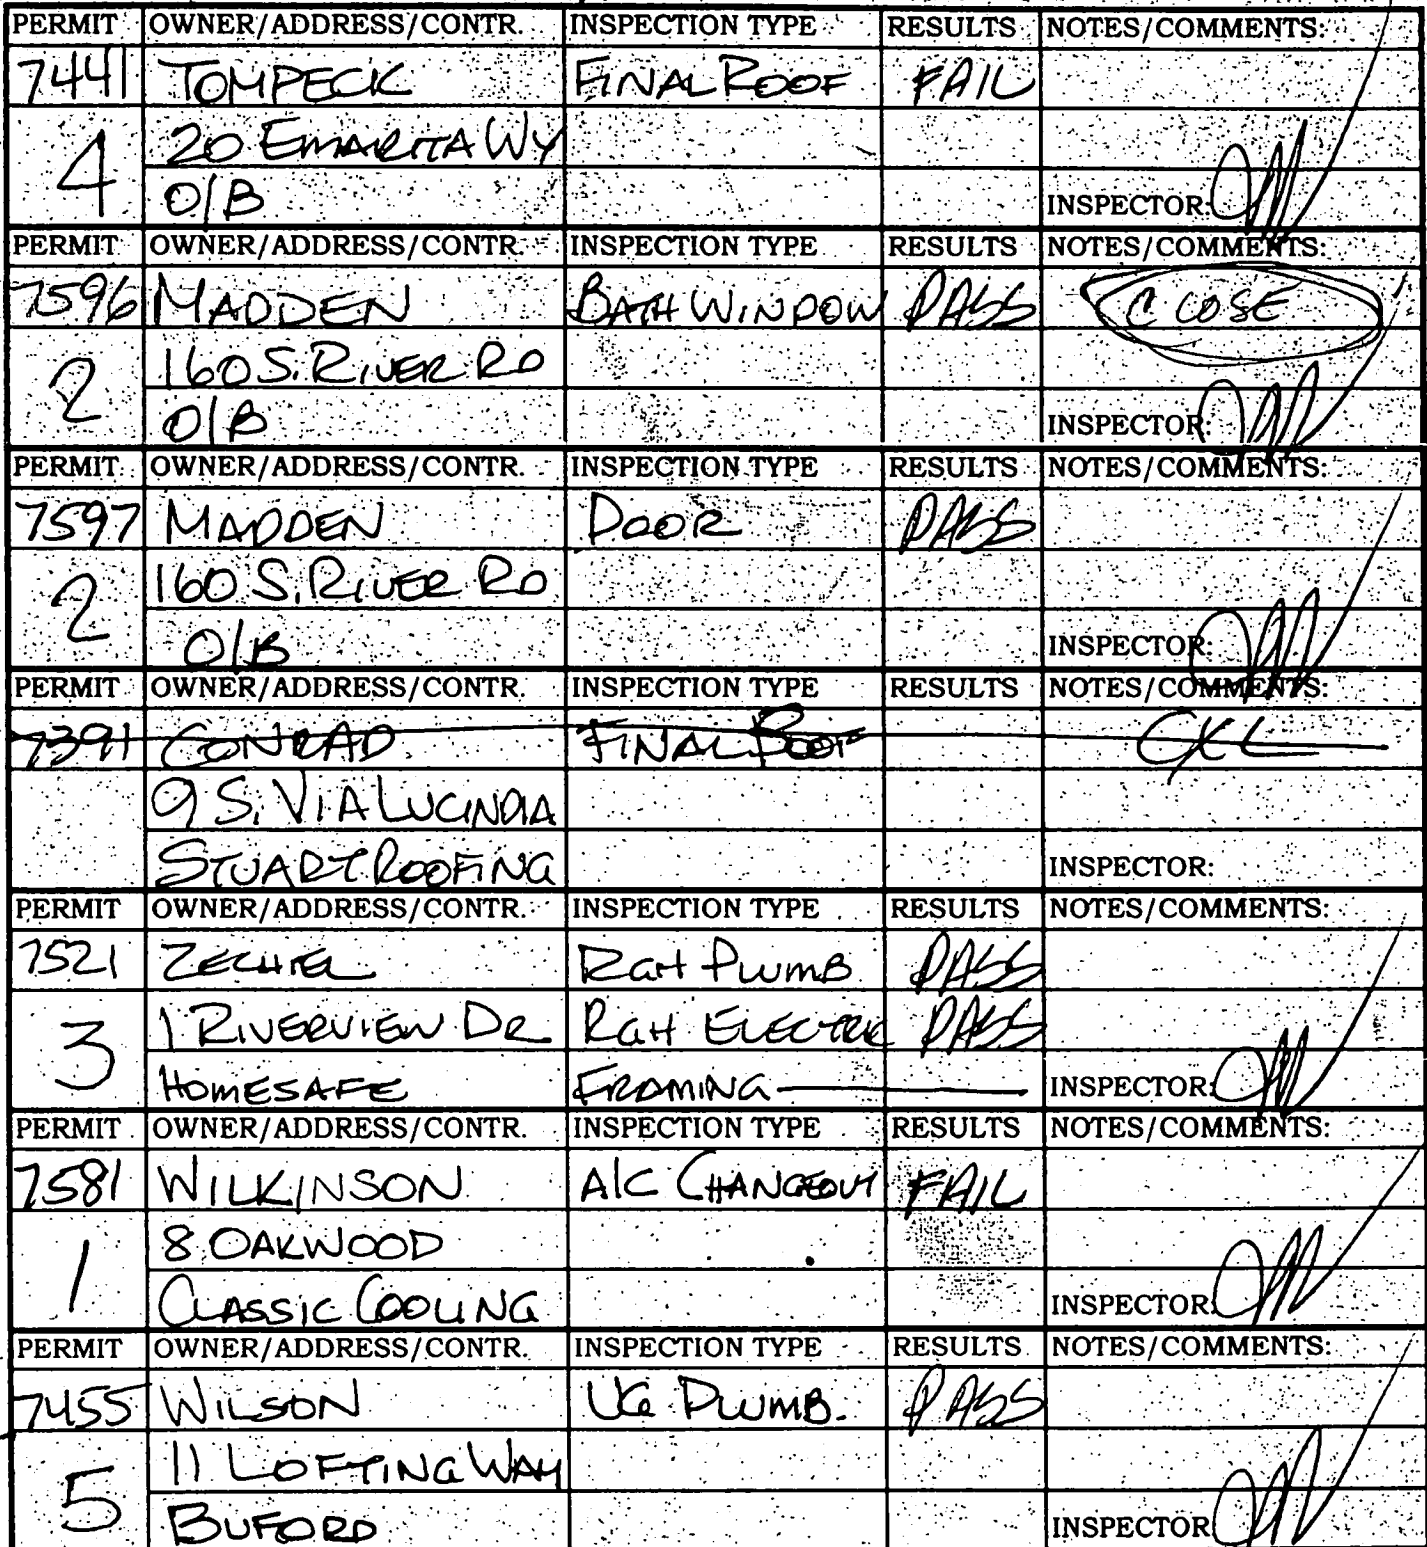 PERMIT OWNER/ADDRESS/CONTR. INSPECTION TYPE RESULTS NOTES/COMMENTS:
7441 TOMPECK FINAL ROOF FAIL
4 20 EMARITA WY
O/B INSPECTOR:
PERMIT OWNER/ADDRESS/CONTR. INSPECTION TYPE RESULTS NOTES/COMMENTS:
7596 MADDEN BATH WINDOW PASS CLOSE
2 160 S. RIVER RD
O/B INSPECTOR:
PERMIT OWNER/ADDRESS/CONTR. INSPECTION TYPE RESULTS NOTES/COMMENTS:
7597 MADDEN DOOR PASS
2 160 S. RIVER RD
O/B INSPECTOR:
PERMIT OWNER/ADDRESS/CONTR. INSPECTION TYPE RESULTS NOTES/COMMENTS:
7391 CONRAD FINAL ROOF
9 S. VIA LUCINDIA
STUART ROOFING INSPECTOR:
PERMIT OWNER/ADDRESS/CONTR. INSPECTION TYPE RESULTS NOTES/COMMENTS:
7521 ZECHIEL RGH PLUMB PASS
3 1 RIVERVIEW DR RGH ELECTRIC PASS
HOMESAFE FRAMING INSPECTOR:
PERMIT OWNER/ADDRESS/CONTR. INSPECTION TYPE RESULTS NOTES/COMMENTS:
7581 WILKINSON A/C CHANGEOUT FAIL
1 8 OAKWOOD
CLASSIC COOLING INSPECTOR:
PERMIT OWNER/ADDRESS/CONTR. INSPECTION TYPE RESULTS NOTES/COMMENTS:
7455 WILSON UG PLUMB. PASS
5 11 LOFTING WAY
BUFORD INSPECTOR